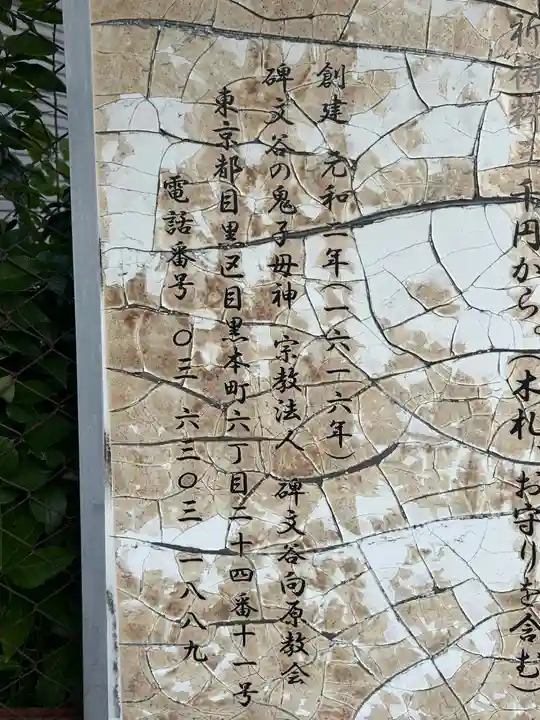 祈祷料三千円から。(木札、お守りを含む)
創建 元和二年(一六一六年)
碑文谷の鬼子母神 宗教法人 碑文谷向原教会
東京都目黒区目黒本町六丁目二十四番十一号
電話番号 〇三 六三〇三 一八八九